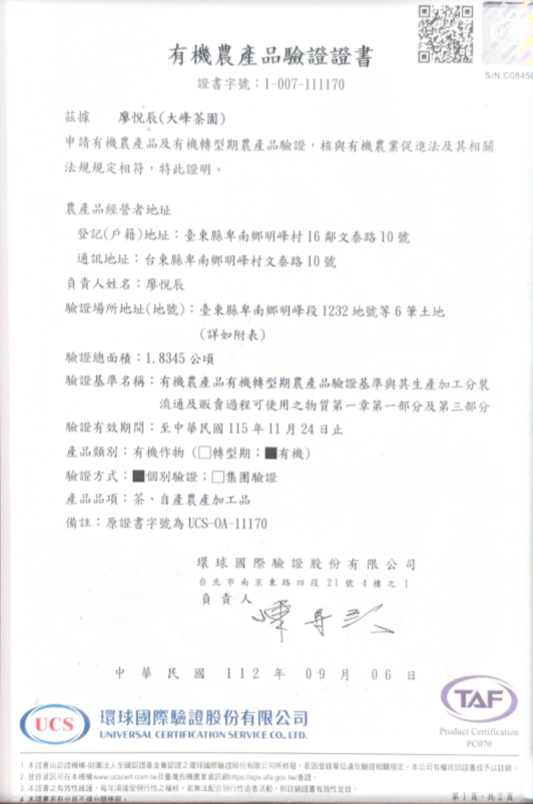 有機農產品驗證證書
證書字號：1-007-111170
S/N.C0845
茲據　廖悅辰(大峰茶園)
申請有機農產品及有機轉型期農產品驗證，核與有機農業促進法及其相關
法規規定相符，特此證明。
農產品經營者地址
登記(戶籍)地址：臺東縣卑南鄉明峰村 16 鄰文泰路 10 號
通訊地址：台東縣卑南鄉明峰村文泰路 10 號
負責人姓名：廖悅辰
驗證場所地址(地號)：臺東縣卑南鄉明峰段 1232 地號等 6 筆土地
(詳如附表)
驗證總面積：1.8345 公頃
驗證基準名稱：有機農產品有機轉型期農產品驗證基準與其生產加工分裝
流通及販賣過程可使用之物質第一章第一部分及第三部分
驗證有效期間：至中華民國 115 年 11 月 24 日止
產品類別：有機作物 (□轉型期；■有機)
驗證方式：■個別驗證；□集團驗證
產品品項：茶、自產農產加工品
備註：原證書字號為 UCS-OA-11170
環球國際驗證股份有限公司
台北市南京東路四段 21 號 4 樓之 1
負責人
中華民國 112 年 09 月 06 日
UCS 環球國際驗證股份有限公司
UNIVERSAL CERTIFICATION SERVICE CO., LTD.
TAF
Product Certification
PC070
1. 本證書由認證機構-財團法人全國認證基金會認證之環球國際驗證股份有限公司所核發，若因登錄單位違反驗證相關規定，本公司有權收回證書或予以註銷。
2. 登錄資訊可在本機構www.ucscert.com.tw及臺灣有機農業資訊網https://epv.afa.gov.tw/查證。
3. 本證書之有效性維護，每年須接受例行性之稽核，若無法配合例行性追查活動，則註銷證書有效性登錄。
4. 本證書若有分頁不得分開使用。
第 1 頁，共 2 頁